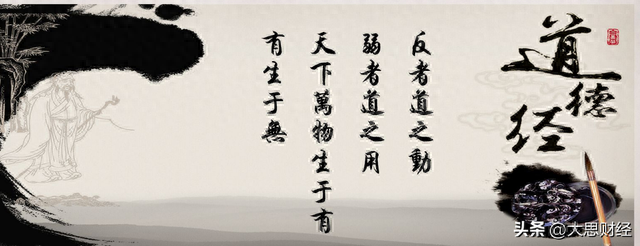 道德经
反者道之動
弱者道之用
天下萬物生于有
有生于無
头条 @大思财经